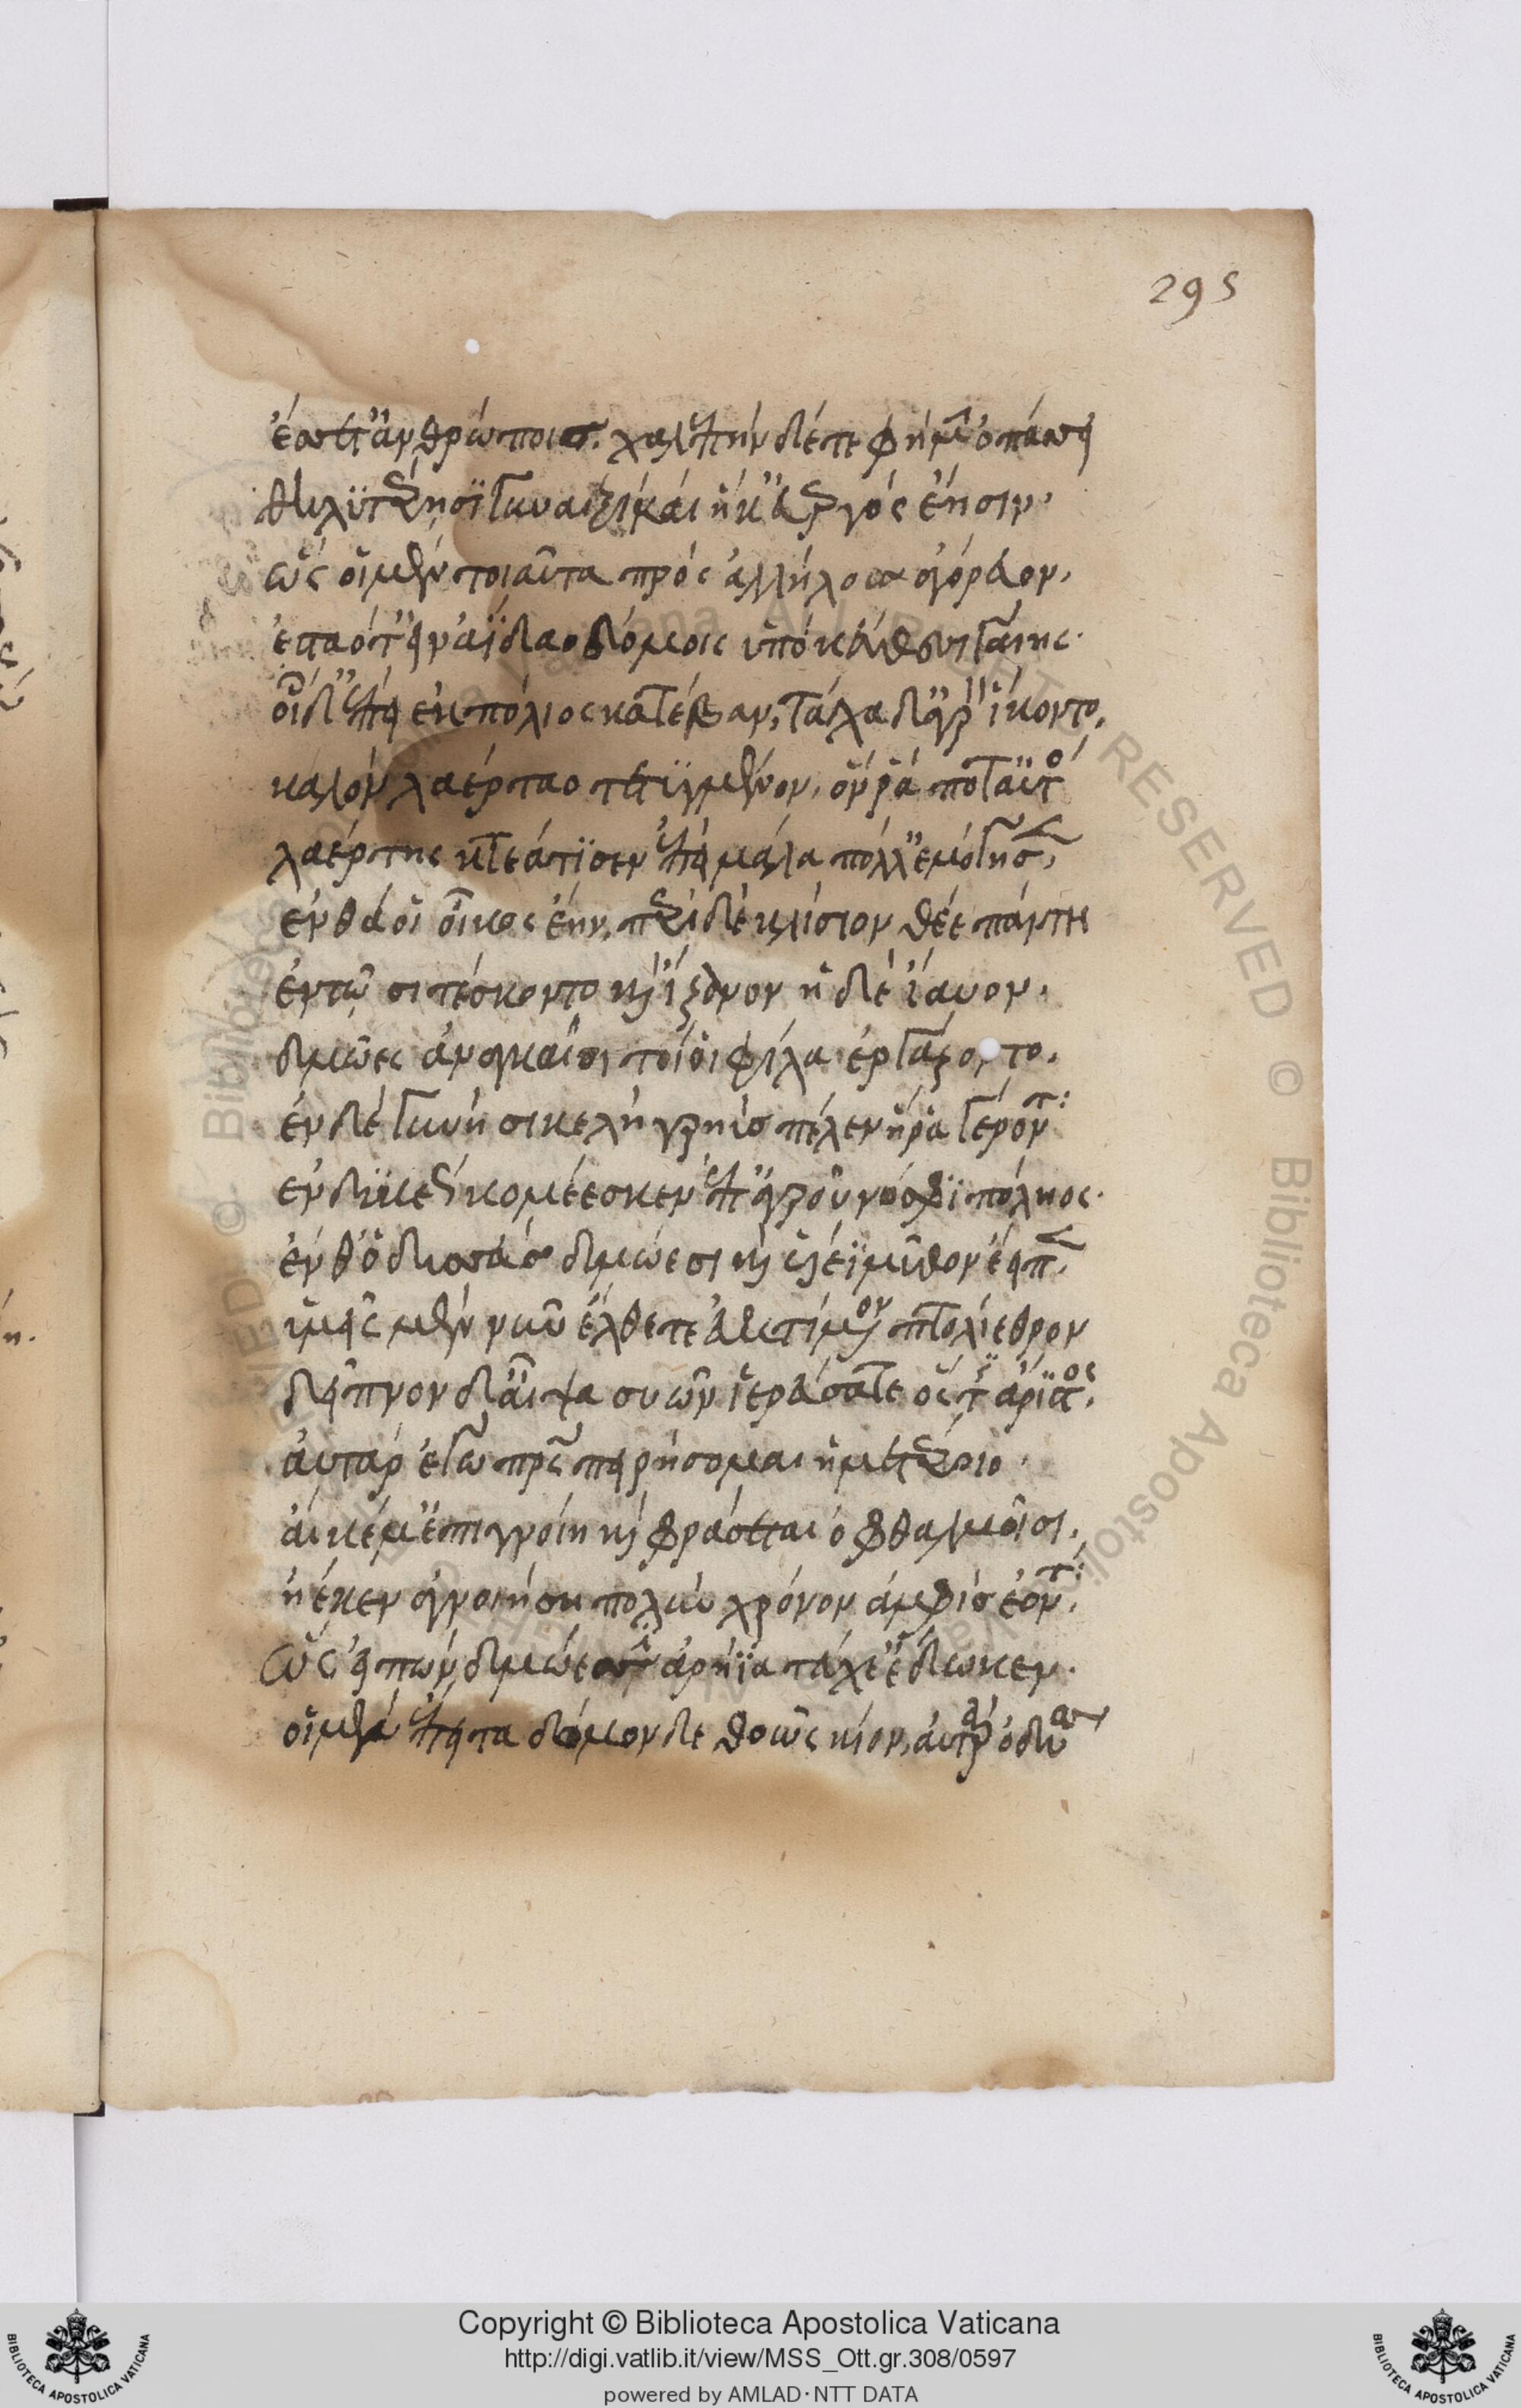 295
ἔσσετ' ἀνθρώποισι. χαλεπὴν δέ τε φῆμιν ὀπάσσει
θηλυτέρῃσι γυναιξὶ καὶ ἥ κ' εὐεργὸς ἔῃσιν.
ὣς οἱ μὲν τοιαῦτα πρὸς ἀλλήλους ἀγόρευον,
ἑσταότ' εἰν ἀΐδαο δόμοις ὑπὸ κεύθεσι γαίης.
οἱ δ' ἐπεὶ ἐκ πόλιος κατέβαν, τάχα δ' ἀγρὸν ἵκοντο,
καλὸν λαέρταο τετυγμένον, ὅν ῥά ποτ' αὐτὸς
λαέρτης κτεάτισεν ἐπεὶ μάλα πόλλ' ἐμόγησεν,
ἔνθά οἱ οἶκος ἔην, περὶ δὲ κλίσιον θέε πάντῃ
ἐν τῷ σιτέσκοντο καὶ ἵζανον ἠδὲ ἴαυον.
δμῶες ἀναγκαῖοι τοί οἱ φίλα ἐργάζοντο.
ἐν δὲ γυνὴ σικελὴ γρηῢς πέλεν ἥ ῥα γέροντα
ἐνδυκέως κομέεσκεν ἐπ' ἀγροῦ νόσφι πόληος.
ἔνθ' ὀδυσσεὺς δμώεσσι καὶ υἱέϊ μῦθον ἔειπεν,
ὑμεῖς μὲν νῦν ἔλθετ' ἐϋκτίμενον πτολίεθρον
δεῖπνον δ' αἶψα συῶν ἱερεύσατε ὅς τις ἄριστος.
αὐτὰρ ἐγὼ πατρὸς πειρήσομαι ἡμετέροιο
αἴ κέ μ' ἐπιγνοίη καὶ φράσσεται ὀφθαλμοῖσι,
ἠέ κεν ἀγνοιῇσι πολὺν χρόνον ἀμφὶς ἐόντα.
ὣς εἰπὼν δμώεσσιν ἀρήϊα τεύχε' ἔδωκεν.
οἱ μὲν ἔπειτα δόμονδε θοῶς κίον, αὐτὰρ ὀδυσσεὺς
Copyright © Biblioteca Apostolica Vaticana
http://digi.vatlib.it/view/MSS_Ott.gr.308/0597
powered by AMLAD·NTT DATA